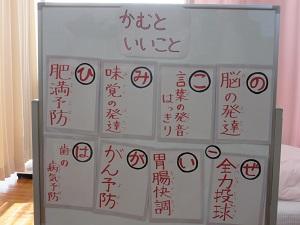 かむと
いいこと
ひ
肥満予防
み
味覚の発達
こ
言葉の発音
はっきり
の
脳の発達
は
歯の
病気予防
が
がん予防
い
胃腸快調
ー
ぜ
全力投球